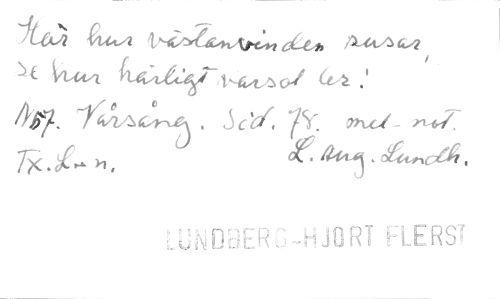 Här hur västanvinden susar,
se hur härligt varsol ler!
N57. Vårsång. Sid. 78. med not.
Tx. L-n. L. Aug. Lundh.
LUNDBERG-HJORT FLERST